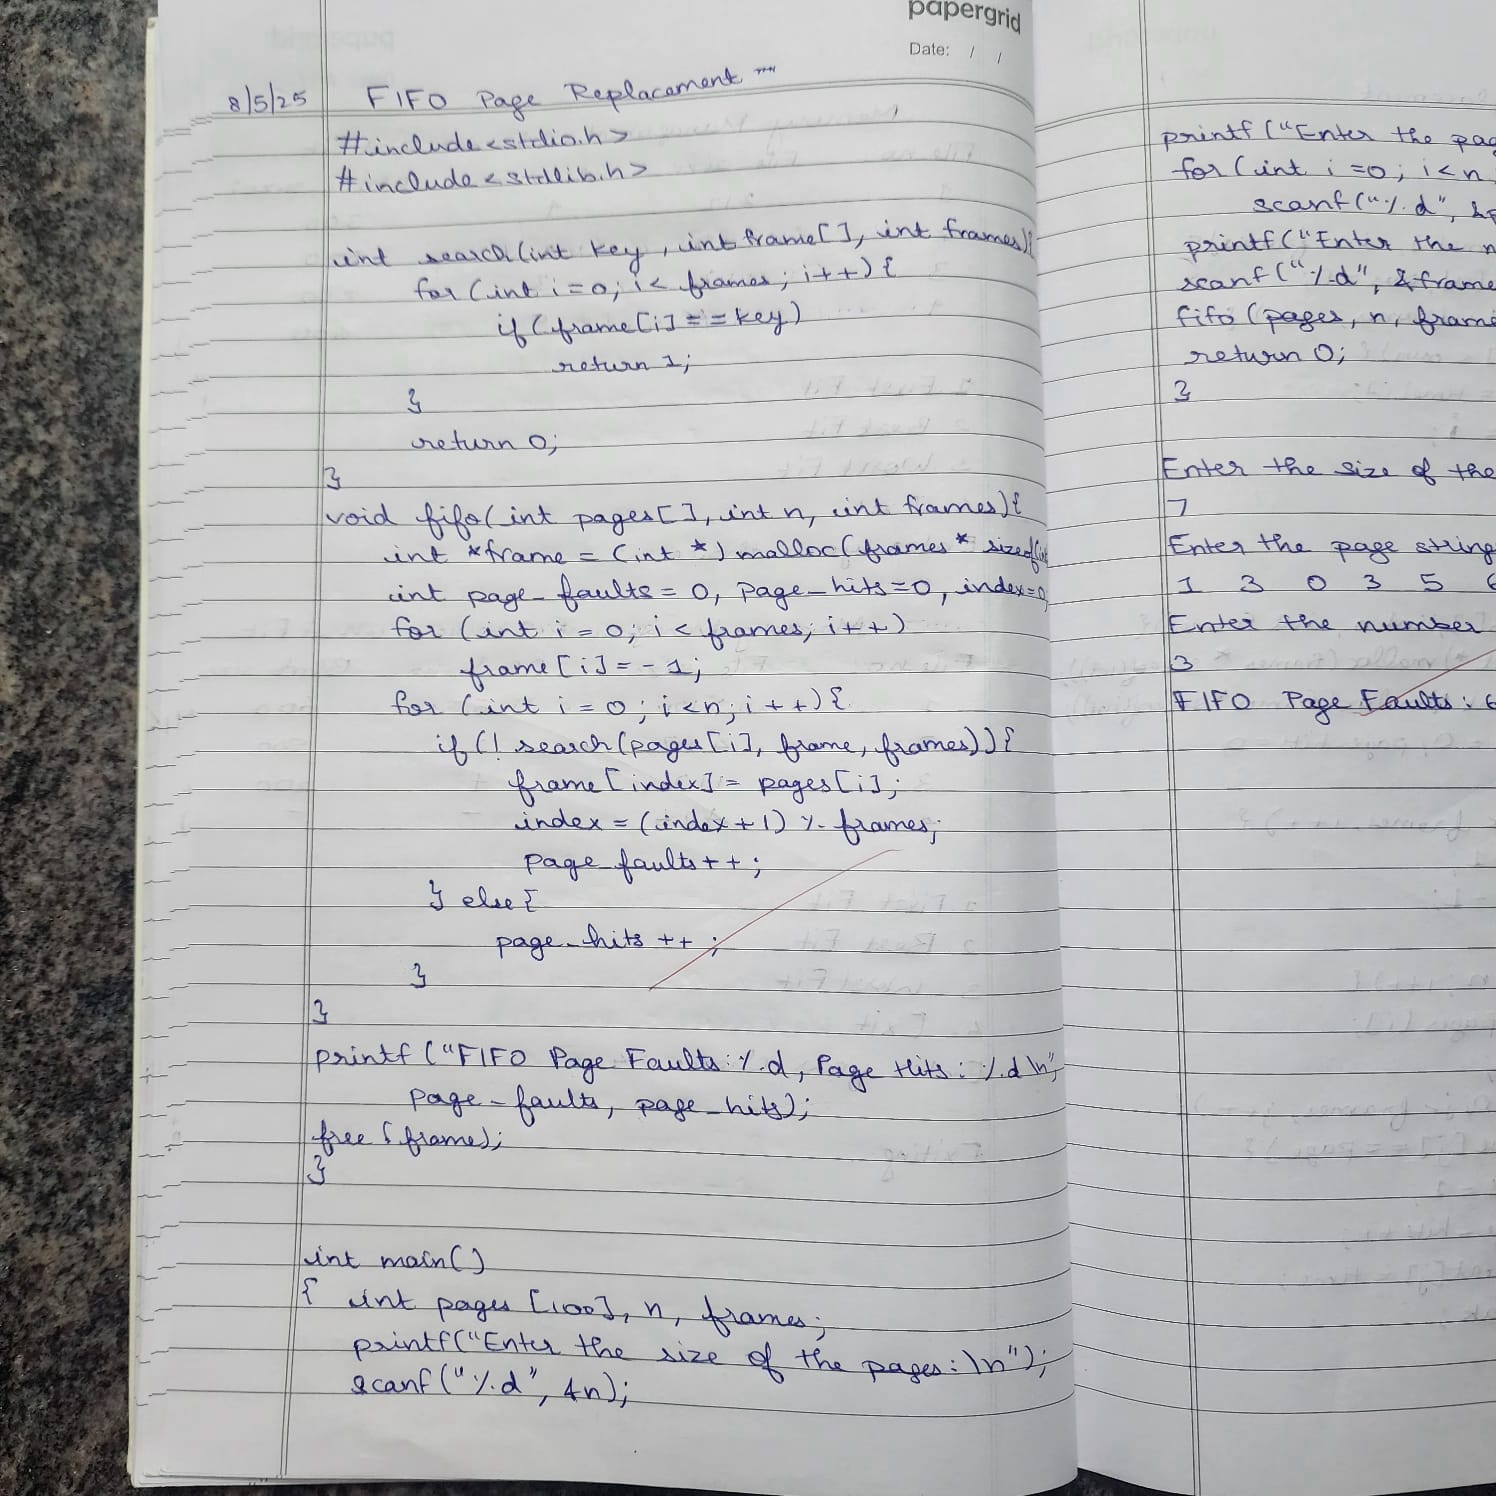 papergrid
Date: / /
8/5/25 FIFO Page Replacement
#include<stdio.h>
#include<stdlib.h>
int search(int key, int frame[], int frames){
for (int i=0; i< frames; i++) {
if (frame[i]==key)
return 1;
}
return 0;
}
void fifo(int pages[], int n, int frames){
int *frame = (int *) malloc(frames * sizeof(in
int page_faults = 0, page_hits=0, index=0
for (int i = 0; i < frames; i++)
frame[i]=-1;
for (int i = 0; i<n; i++){
if (! search(pages[i], frame, frames)){
frame[index]= pages[i];
index = (index+1) % frames;
page_faults++;
} else{
page_hits ++;
}
}
printf ("FIFO Page Faults: %d, Page Hits: %d \n",
page_faults, page_hits);
free (frame);
}
int main()
{ int pages [100], n, frames;
printf("Enter the size of the pages:\n");
scanf("%d", &n);
printf ("Enter the pag
for (int i =0; i<n
scanf("%d", &p
printf("Enter the n
scanf("%d", &frame
fifo (pages, n, frame
return 0;
}
Enter the size of the
7
Enter the page string
1 3 0 3 5 6
Enter the number
3
FIFO Page Faults: 6